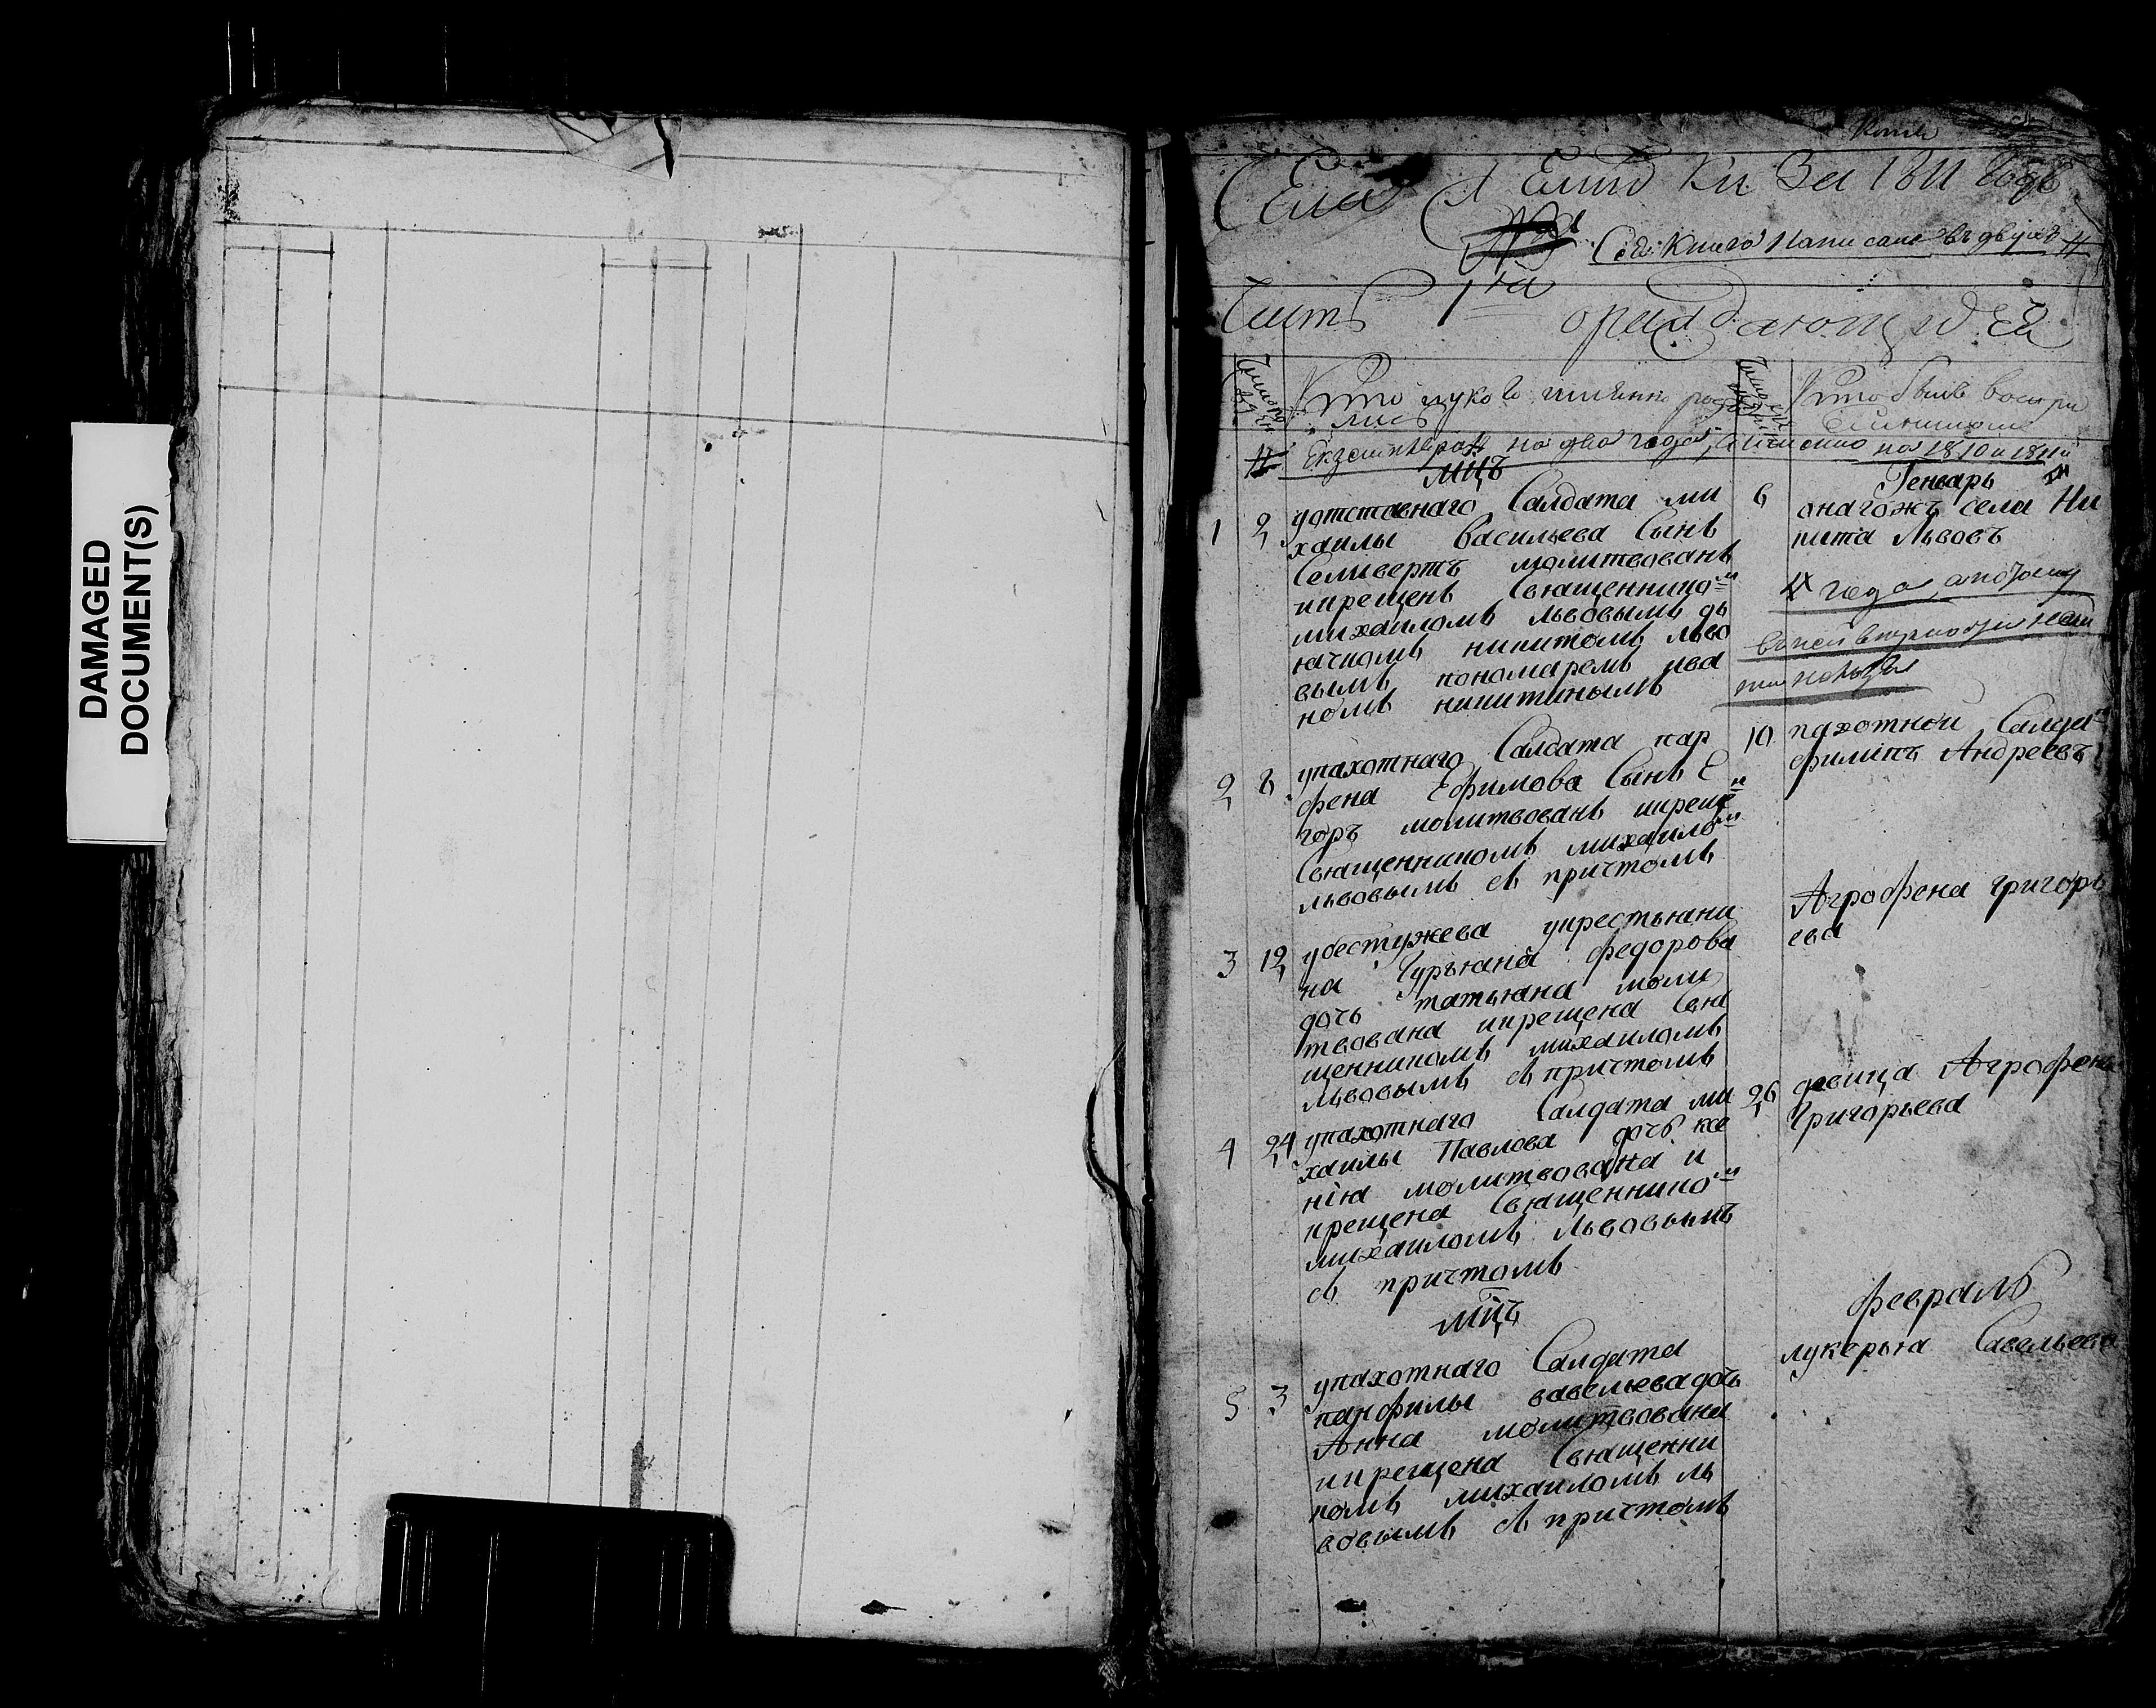 DAMAGED
DOCUMENT(S)
1811
Сея книга написана въ двухъ #
Часть 1я о раждающихся
Кто у кого имянно роди
лись
Кто былъ воспри
# Екземплярахъ на два года, а имянно на 1810 и 1811й
мцъ Генварь
1 2 уотставнаго Салдата ми
хаилы Васильева Сынъ
Селиверстъ молитвованъ
икрещенъ Священнико
михаиломъ львовымъ дь
ячкомъ никитомъ льво
вымъ пономаремъ ива
номъ никитинымъ
6 онагожъ села Ни
кита Львовъ
# года, а потому
2 8 упахотнаго Салдата пар
фена Ефимова Сынъ Е
горъ молитвованъ икреще
Священникомъ михаило
львовымъ съ причтомъ
10 пахотной Салда
филипъ Андреевъ
3 12 убестужева укрестьяни
на Гурьяна федорова
дочь татьяна моли
твована икрещена Свя
щенникомъ михаиломъ
львовымъ съ причтомъ
Аграфена григорь
ева
4 24 упахотнаго Салдата ми
хаилы Павлова дочь ксе
нія молитвована и
крещена Священнико
михаиломъ Львовымъ
съ причтомъ
26 девица Аграфена
Григорьева
мцъ февраль
5 3 упахотнаго Салдата
панфилы савельева дочь
Анна молитвована
икрещена Священни
комъ михаиломъ ль
вовымъ съ причтомъ
лукерья Савельева